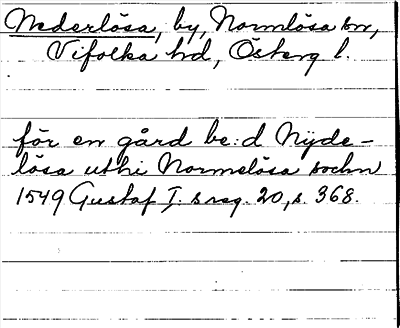 Nederlösa, by, Normlösa sn,
Vifolka hd, Österg l.
för en gård be:d Nyde-
lösa uthi Normelösa sochn
1549 Gustaf I:s reg. 20, s. 368.